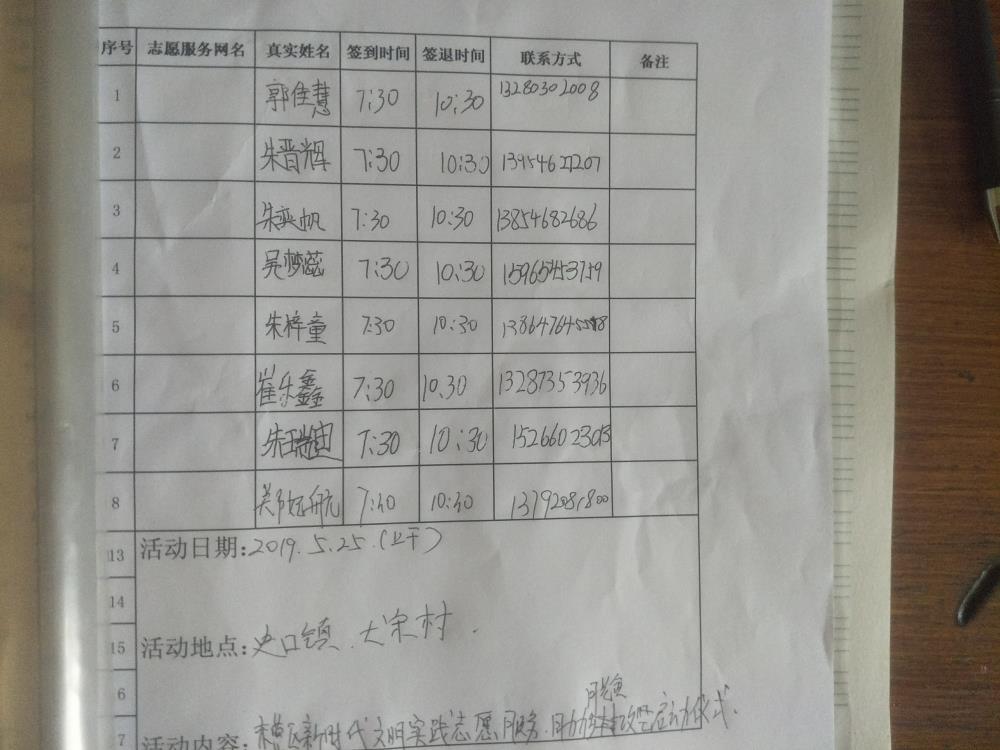 序号 志愿服务网名 真实姓名 签到时间 签退时间 联系方式 备注
1 郭佳慧 7:30 10:30 13280302008
2 朱晋辉 7:30 10:30 13954627207
3 朱奕帆 7:30 10:30 13854682686
4 吴梦蕊 7:30 10:30
5 朱梓童 7:30 10:30
6 崔乐鑫 7:30 10.30 13287353936
7 朱瑞迪 7:30 10:30
8 郑航 7:30 10:30
13 活动日期:2019.5.25.(上午)
14
15 活动地点:史口镇.大宋村.
6
7 活动内容: 新时代文明实践志愿服务.助力 攻坚启动仪式.